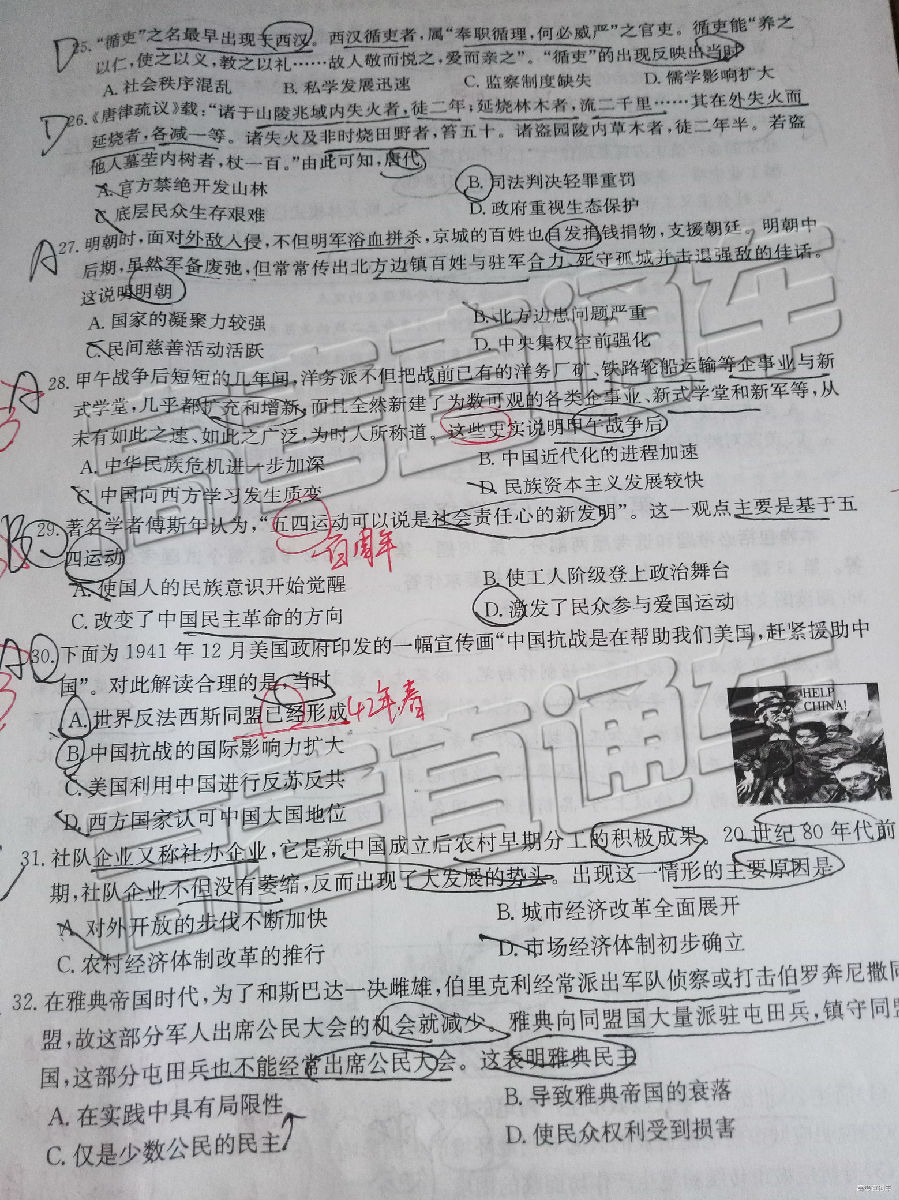 D
25.“循吏”之名最早出现于西汉。西汉循吏者,属“奉职循理,何必威严”之官吏。循吏能“养之
以仁,使之以义,教之以礼……故人敬而悦之,爱而亲之”。“循吏”的出现反映出当时
A.社会秩序混乱 B.私学发展迅速 C.监察制度缺失 D.儒学影响扩大
D
26.《唐律疏议》载:“诸于山陵兆域内失火者,徒二年;延烧林木者,流二千里……其在外失火而
延烧者,各减一等。诸失火及非时烧田野者,笞五十。诸盗园陵内草木者,徒二年半。若盗
他人墓茔内树者,杖一百。”由此可知,唐代
A.官方禁绝开发山林 B.司法判决轻罪重罚
C.底层民众生存艰难 D.政府重视生态保护
A
27.明朝时,面对外敌入侵,不但明军浴血拼杀,京城的百姓也自发捐钱捐物,支援朝廷。明朝中
后期,虽然军备废弛,但常常传出北方边镇百姓与驻军合力、死守孤城并击退强敌的佳话。
这说明明朝
A.国家的凝聚力较强 B.北方边患问题严重
C.民间慈善活动活跃 D.中央集权空前强化
A
28.甲午战争后短短的几年间,洋务派不但把战前已有的洋务厂矿、铁路轮船运输等企事业与新
式学堂,几乎都扩充和增新,而且全然新建了为数可观的各类企事业、新式学堂和新军等,从
未有如此之速、如此之广泛,为时人所称道。这些史实说明甲午战争后
A.中华民族危机进一步加深 B.中国近代化的进程加速
C.中国向西方学习发生质变 D.民族资本主义发展较快
B
29.著名学者傅斯年认为,“五四运动可以说是社会责任心的新发明”。这一观点主要是基于五
四运动
百周年
A.使国人的民族意识开始觉醒 B.使工人阶级登上政治舞台
C.改变了中国民主革命的方向 D.激发了民众参与爱国运动
A
30.下面为1941年12月美国政府印发的一幅宣传画“中国抗战是在帮助我们美国,赶紧援助中
国”。对此解读合理的是,当时
A.世界反法西斯同盟已经形成 42年,春
B.中国抗战的国际影响力扩大
C.美国利用中国进行反苏反共
D.西方国家认可中国大国地位
HELP
CHINA!
31.社队企业又称社办企业,它是新中国成立后农村早期分工的积极成果。20世纪80年代前
期,社队企业不但没有萎缩,反而出现了大发展的势头。出现这一情形的主要原因是
A.对外开放的步伐不断加快 B.城市经济改革全面展开
C.农村经济体制改革的推行 D.市场经济体制初步确立
32.在雅典帝国时代,为了和斯巴达一决雌雄,伯里克利经常派出军队侦察或打击伯罗奔尼撒同
盟,故这部分军人出席公民大会的机会就减少。雅典向同盟国大量派驻屯田兵,镇守同盟
国,这部分屯田兵也不能经常出席公民大会。这表明雅典民主
A.在实践中具有局限性 B.导致雅典帝国的衰落
C.仅是少数公民的民主 D.使民众权利受到损害
高考直通车
高考直通车